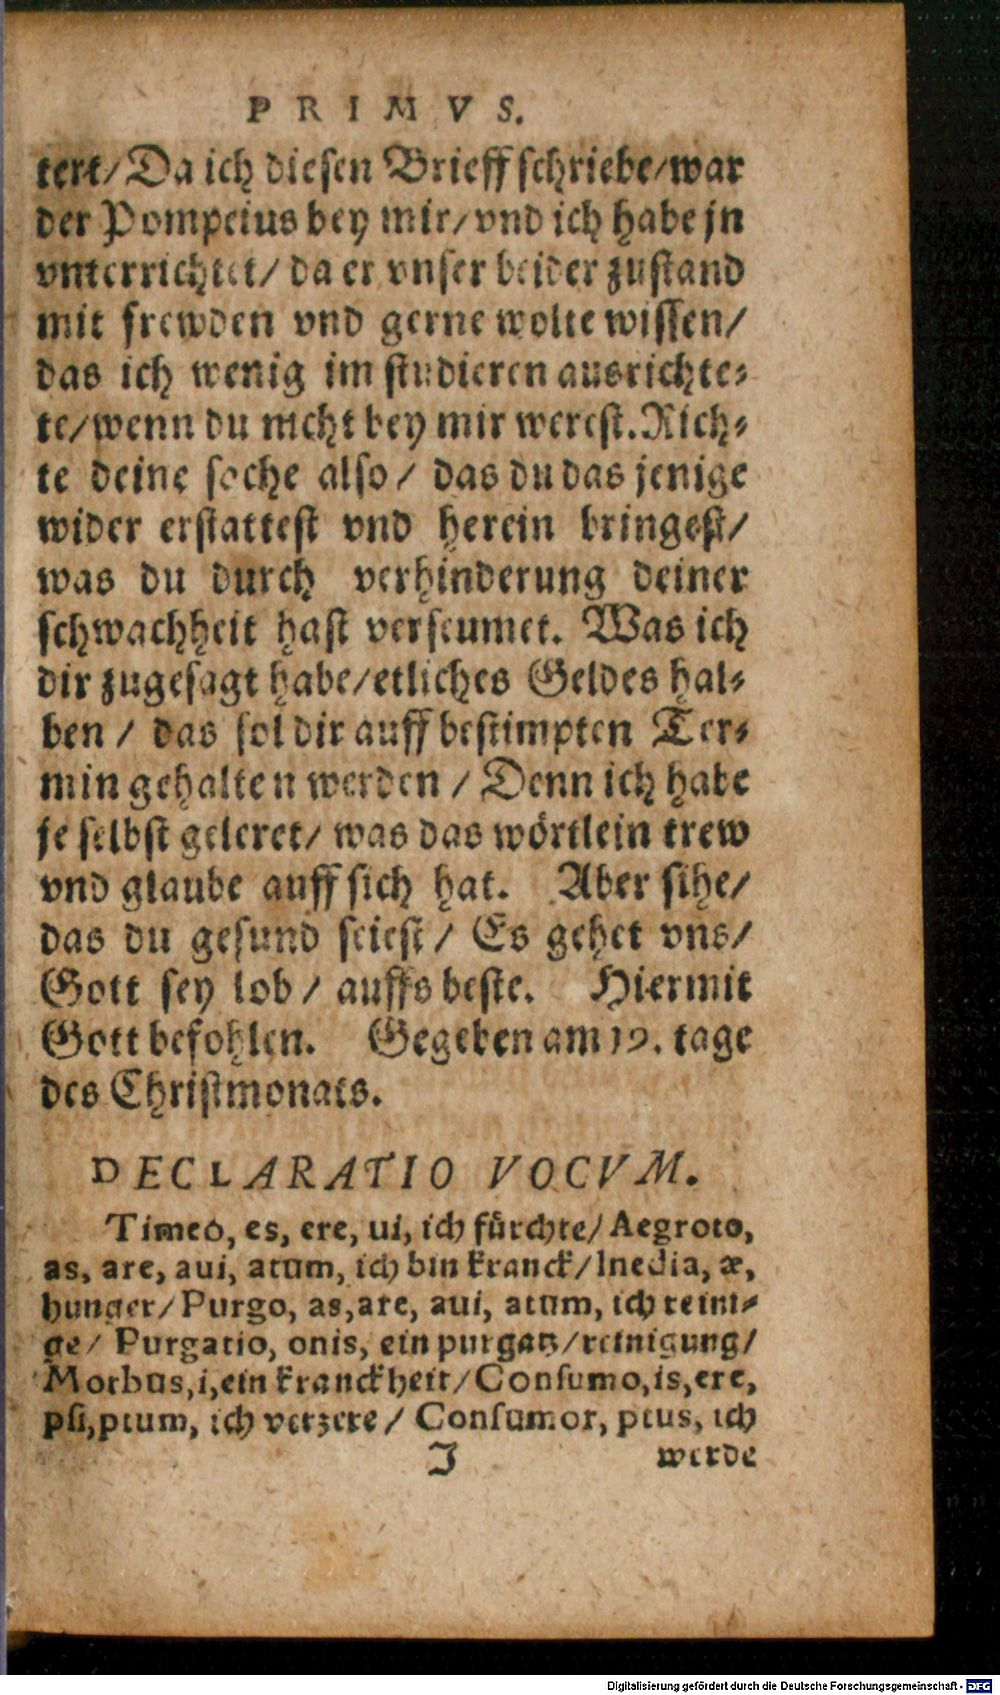 PRIMVS.
tert/Da ich diesen Brieff schriebe/war
der Pompeius bey mir/vnd ich habe jn
vnterrichtet/ da er vnser beider zustand
mit frewden vnd gerne wolte wissen/
das ich wenig im studieren ausrichte⸗
te/wenn du nicht bey mir werest. Rich⸗
te deine sache also/ das du das jenige
wider erstattest vnd herein bringest/
was du durch verhinderung deiner
schwachheit hast verseumet. Was ich
dir zugesagt habe/etliches Geldes hal⸗
ben / das sol dir auff bestimpten Ter⸗
min gehalten werden / Denn ich habe
je selbst geleret/ was das wörtlein trew
vnd glaube auff sich hat. Aber sihe/
das du gesund seiest/ Es gehet vns/
Gott sey lob / auffs beste. Hiermit
Gott befohlen. Gegeben am 19. tage
des Christmonats.
DECLARATIO VOCVM.
Timeo, es, ere, ui, ich fürchte/ Aegroto,
as, are, aui, atum, ich bin kranck/Inedia, æ,
hunger/Purgo, as, are, aui, atum, ich reini⸗
ge/ Purgatio, onis, ein purgatz/reinigung/
Morbus, i, ein kranckheit/Consumo, is, ere,
psi, ptum, ich verzere/ Consumor, ptus, ich
J werde
Digitalisierung gefördert durch die Deutsche Forschungsgemeinschaft - DFG